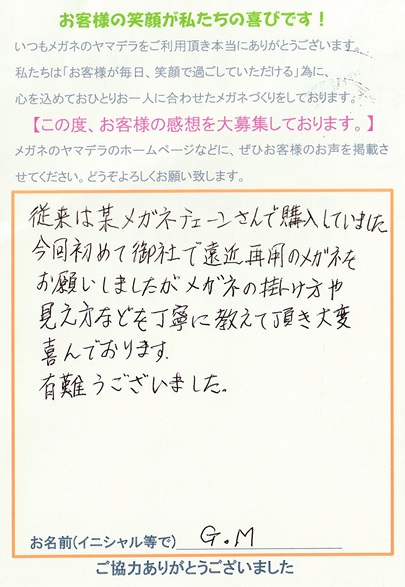 お客様の笑顔が私たちの喜びです！
いつもメガネのヤマデラをご利用頂き本当にありがとうございます。
私たちは「お客様が毎日、笑顔で過ごしていただける」為に、
心を込めておひとりお一人に合わせたメガネづくりをしております。
【この度、お客様の感想を大募集しております。】
メガネのヤマデラのホームページなどに、ぜひお客様のお声を掲載さ
せてください。どうぞよろしくお願い致します。
従来は某メガネチェーンさんで購入していました
今回初めて御社で遠近再用のメガネを
お願いしましたがメガネの掛け方や
見え方などを丁寧に教えて頂き大変
喜んでおります.
有難うございました。
お名前(イニシャル等で) G.M
ご協力ありがとうございました